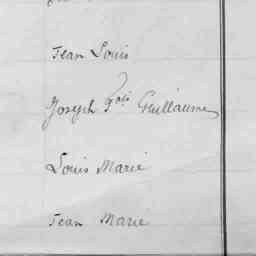 Jean Louis
Joseph Fois Guillaume
Louis Marie
Jean Marie